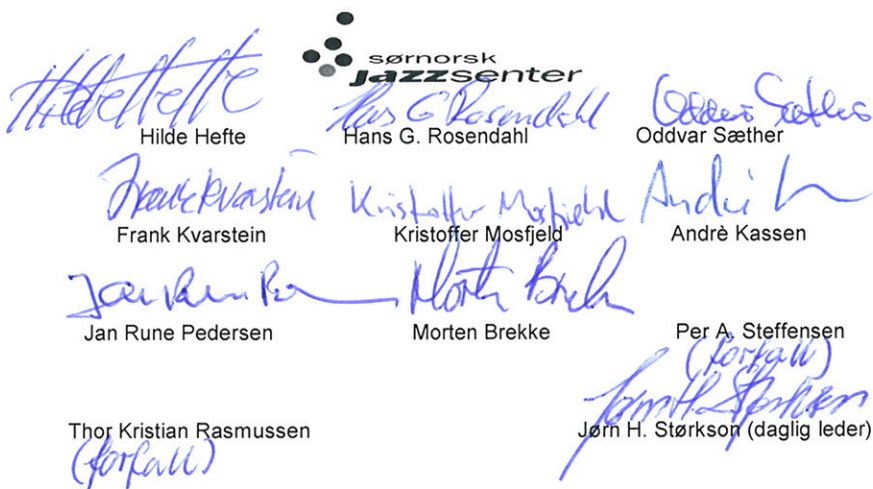 sørnorsk
jazzsenter
Hilde Hefte Hans G Rosendahl Oddvar Sæther
Hilde Hefte Hans G. Rosendahl Oddvar Sæther
Frank Kvarstein Kristoffer Mosfjeld André K
Frank Kvarstein Kristoffer Mosfjeld Andrè Kassen
Jan Rune Pe Morten Brekke
Jan Rune Pedersen Morten Brekke Per A. Steffensen
(forfall)
Jørn H. Størkson
Thor Kristian Rasmussen Jørn H. Størkson (daglig leder)
(forfall)